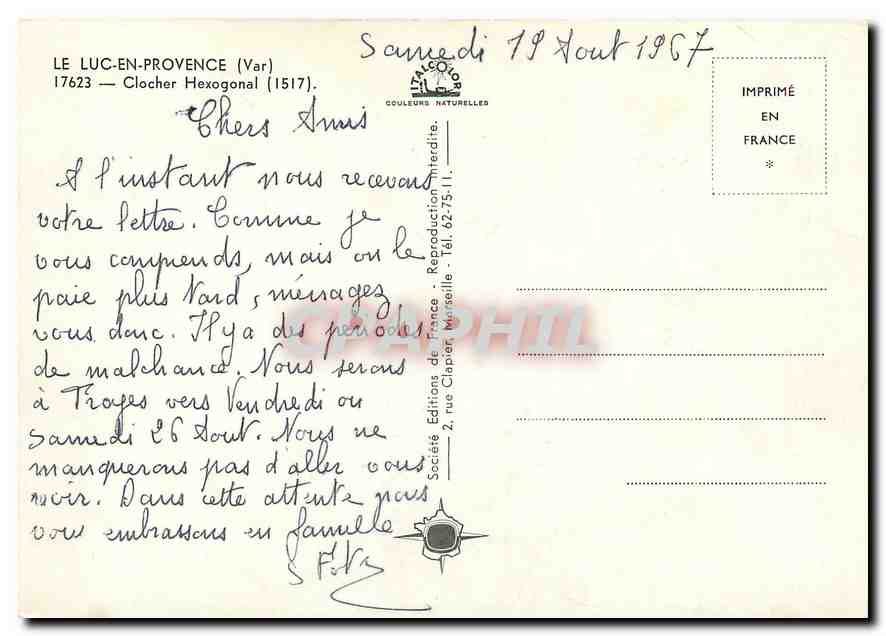 Samedi 19 Aout 1967
LE LUC-EN-PROVENCE (Var)
17623 — Clocher Hexogonal (1517).
ITALCOLOR
COULEURS NATURELLES
IMPRIMÉ
EN
FRANCE
*
Chers Amis
A l'instant nous recevons
votre lettre. Comme je
vous comprends, mais on le
paie plus tard, ménagez
vous donc. Il y a des périodes
de malchance. Nous serons
à Trages vers Vendredi ou
Samedi 26 Aout. Nous ne
manquerons pas d'aller vous
voir. Dans cette attente nous
vous embrassons en famille
Société Editions de France - Reproduction interdite.
2, rue Clapier, Marseille - Tél. 62-75-11.
CPAPHIL